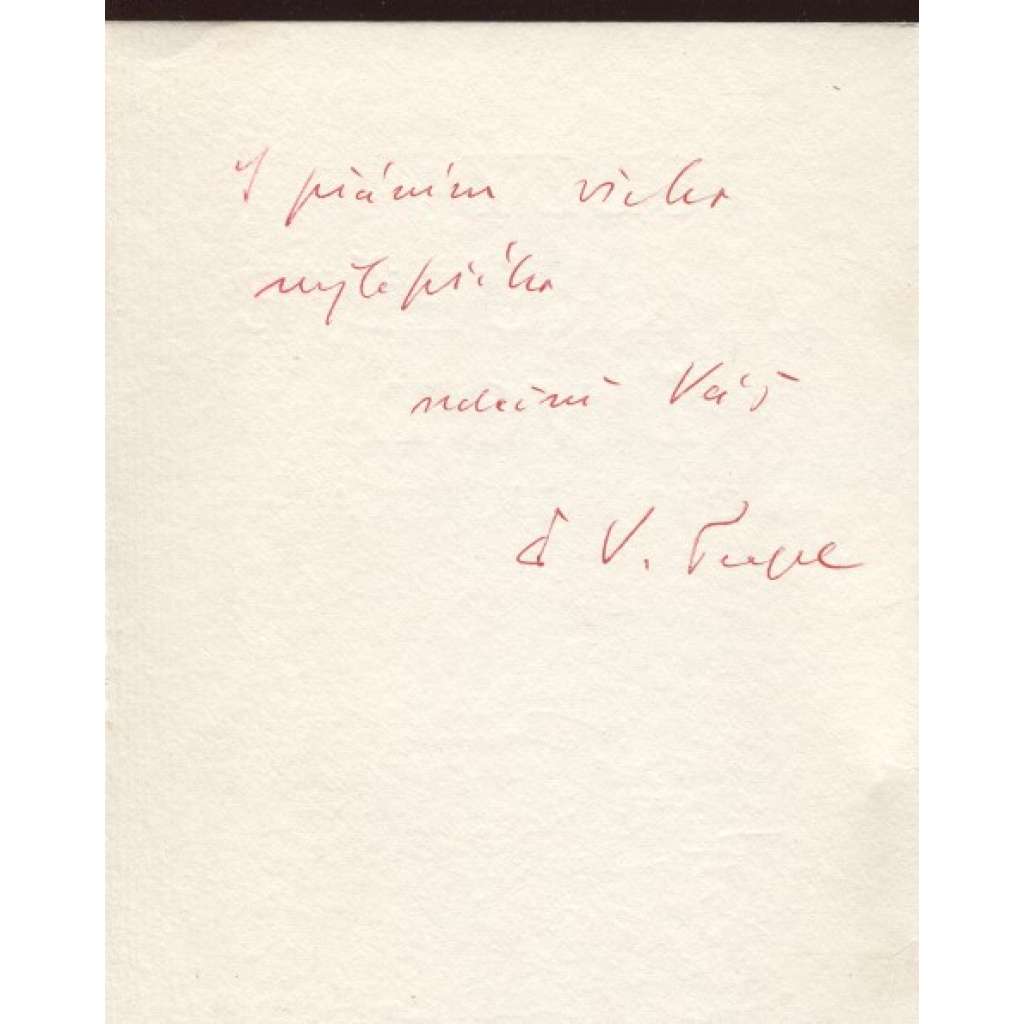 S přáním všeho
nejlepšího
srdečně Váš
V.